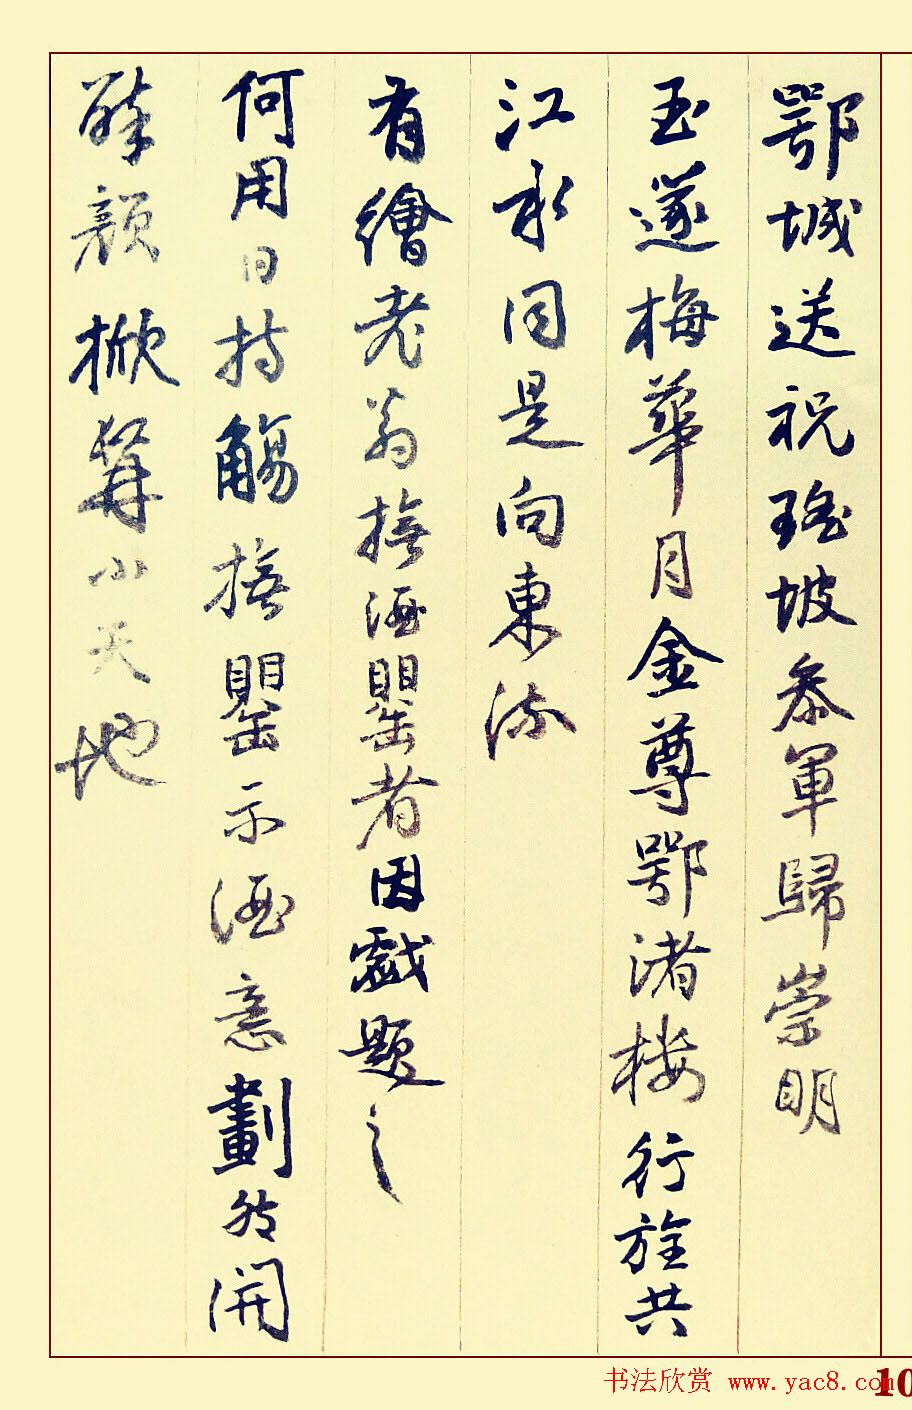 鄂城送祝瑤坡參軍歸崇明
玉遂梅華月金尊鄂渚樓行旌共
江水同是向東流
有繪老翁撫酒罌者因戲題之
何用日持觴撫罌示酒意劃然開
醉顏掀髯小天地
书法欣赏 www.yac8.com
10